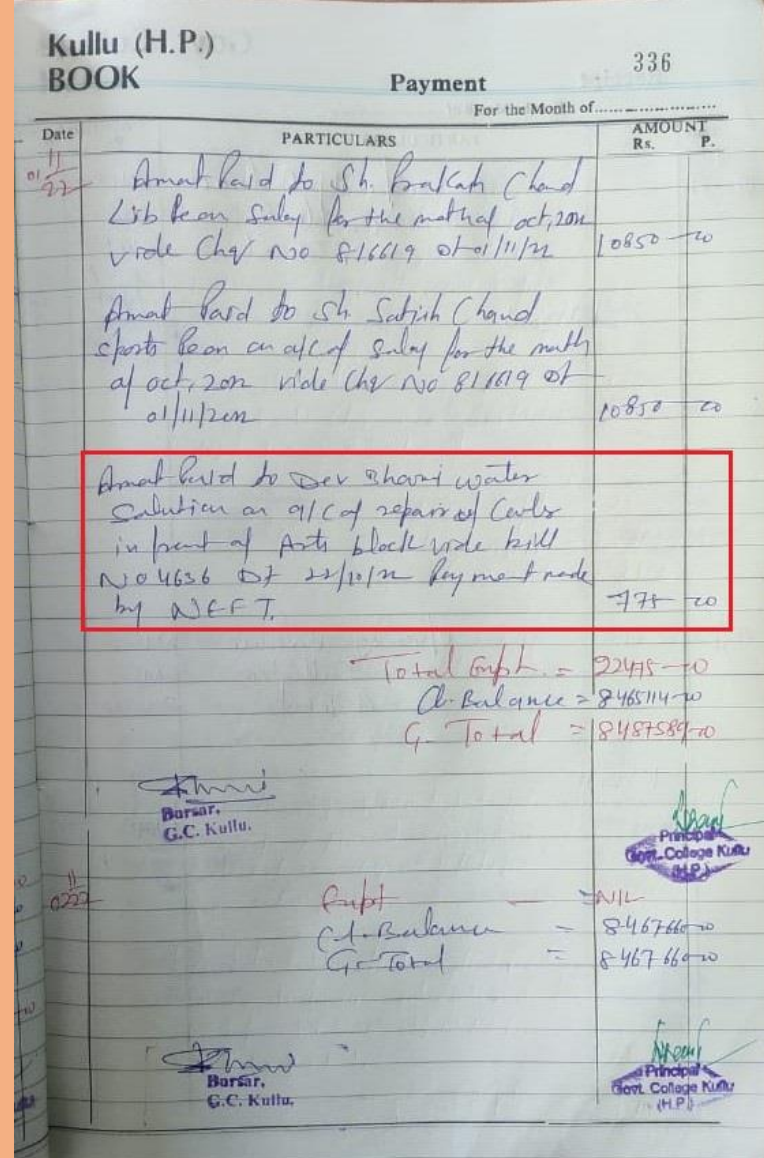 Kullu (H.P.)
BOOK
Payment
336
For the Month of
Date
PARTICULARS
AMOUNT
Rs. P.
01/11/22
Amat Paid to Sh. Prakash Chand
Lib Peon Salay for the mothof oct, 2022
vide Chq No 816619 Dt 01/11/22 10850-00
Amat Paid to Sh. Satish Chand
sports Peon on a/c of Salay for the moth
of oct, 2022 vide Chq No 816619 Dt
01/11/2022 10850-00
Amat Paid to Dev Bhoomi water
Solution on a/c of repair of
in front of Arts block vide bill
No 4636 Dt 22/10/22 Payment made
by NEFT. 775-00
Total Expt. = 22475-00
Cl. Balance = 8465114-00
G. Total = 8487589-00
Bursar,
G.C. Kullu.
Principal
Govt. College Kullu
(H.P.)
02/11/22
Expt - = NIL
Cl. Balance = 8467660-00
G. Total = 8467660-00
Bursar,
G.C. Kullu.
Principal
Govt. College Kullu
(H.P.)